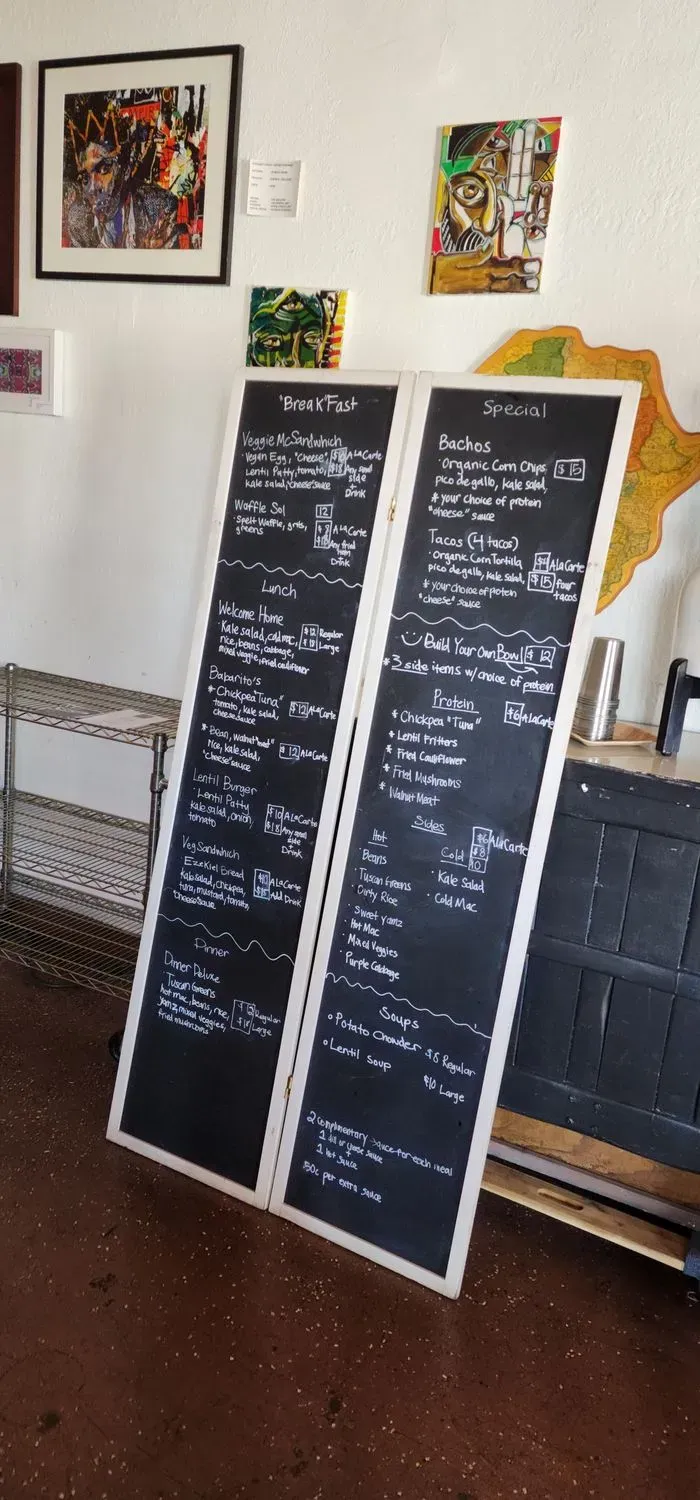 "Break"Fast
Veggie McSandwhich
· Vegan Egg, "Cheese", $10 A La Carte
Lentil Patty, tomato, $18 Any small
kale salad, "cheese" sauce side
+
Drink
Waffle Sol 12
· Spelt Waffle, grits, $8 A La Carte
greens Any fried
item
Drink
Lunch
Welcome Home
· Kale salad, cold mac, $12 Regular
rice, beans, cabbage, $18 Large
mixed veggie, fried cauliflower
Babarito's
* Chickpea "Tuna" $12 A La Carte
tomato, kale salad,
cheese sauce
* Bean, walnut "meat" $12 A La Carte
rice, kale salad,
"cheese" sauce
Lentil Burger
· Lentil Patty $10 A La Carte
kale salad, onion, $18 Any small
tomato side
Drink
Veg Sandwhich
· Ezekiel Bread $10 A La Carte
kale salad, chickpea, Add Drink
tuna, mustard, tomato,
"Cheese" sauce
Dinner
Dinner Deluxe
· Tuscan Greens
hot mac, beans, rice, Regular
yamz, mixed veggies, Large
fried mushrooms
Special
Bachos
· Organic Corn Chips $15
pico de gallo, kale salad,
* your choice of protein
"cheese" sauce
Tacos (4 tacos)
· Organic Corn Tortilla $4 A La Carte
pico de gallo, kale salad, $15 four
* your choice of protein tacos
"cheese" sauce
Build Your Own Bowl $12
* 3 side items w/ choice of protein
Protein $6 A La Carte
* Chickpea "Tuna"
* Lentil Fritters
* Fried Cauliflower
* Fried Mushrooms
* Walnut Meat
Sides
$6 A La Carte
$8
10
Hot
· Beans
· Tuscan Greens
· Dirty Rice
· Sweet Yamz
· Hot Mac
· Mixed Veggies
· Purple Cabbage
Cold
· Kale Salad
· Cold Mac
Soups
° Potato Chowder $8 Regular
° Lentil Soup $10 Large
2 complimentary sauce for each meal
1 dill or cheese sauce
+
1 hot sauce
50c per extra sauce